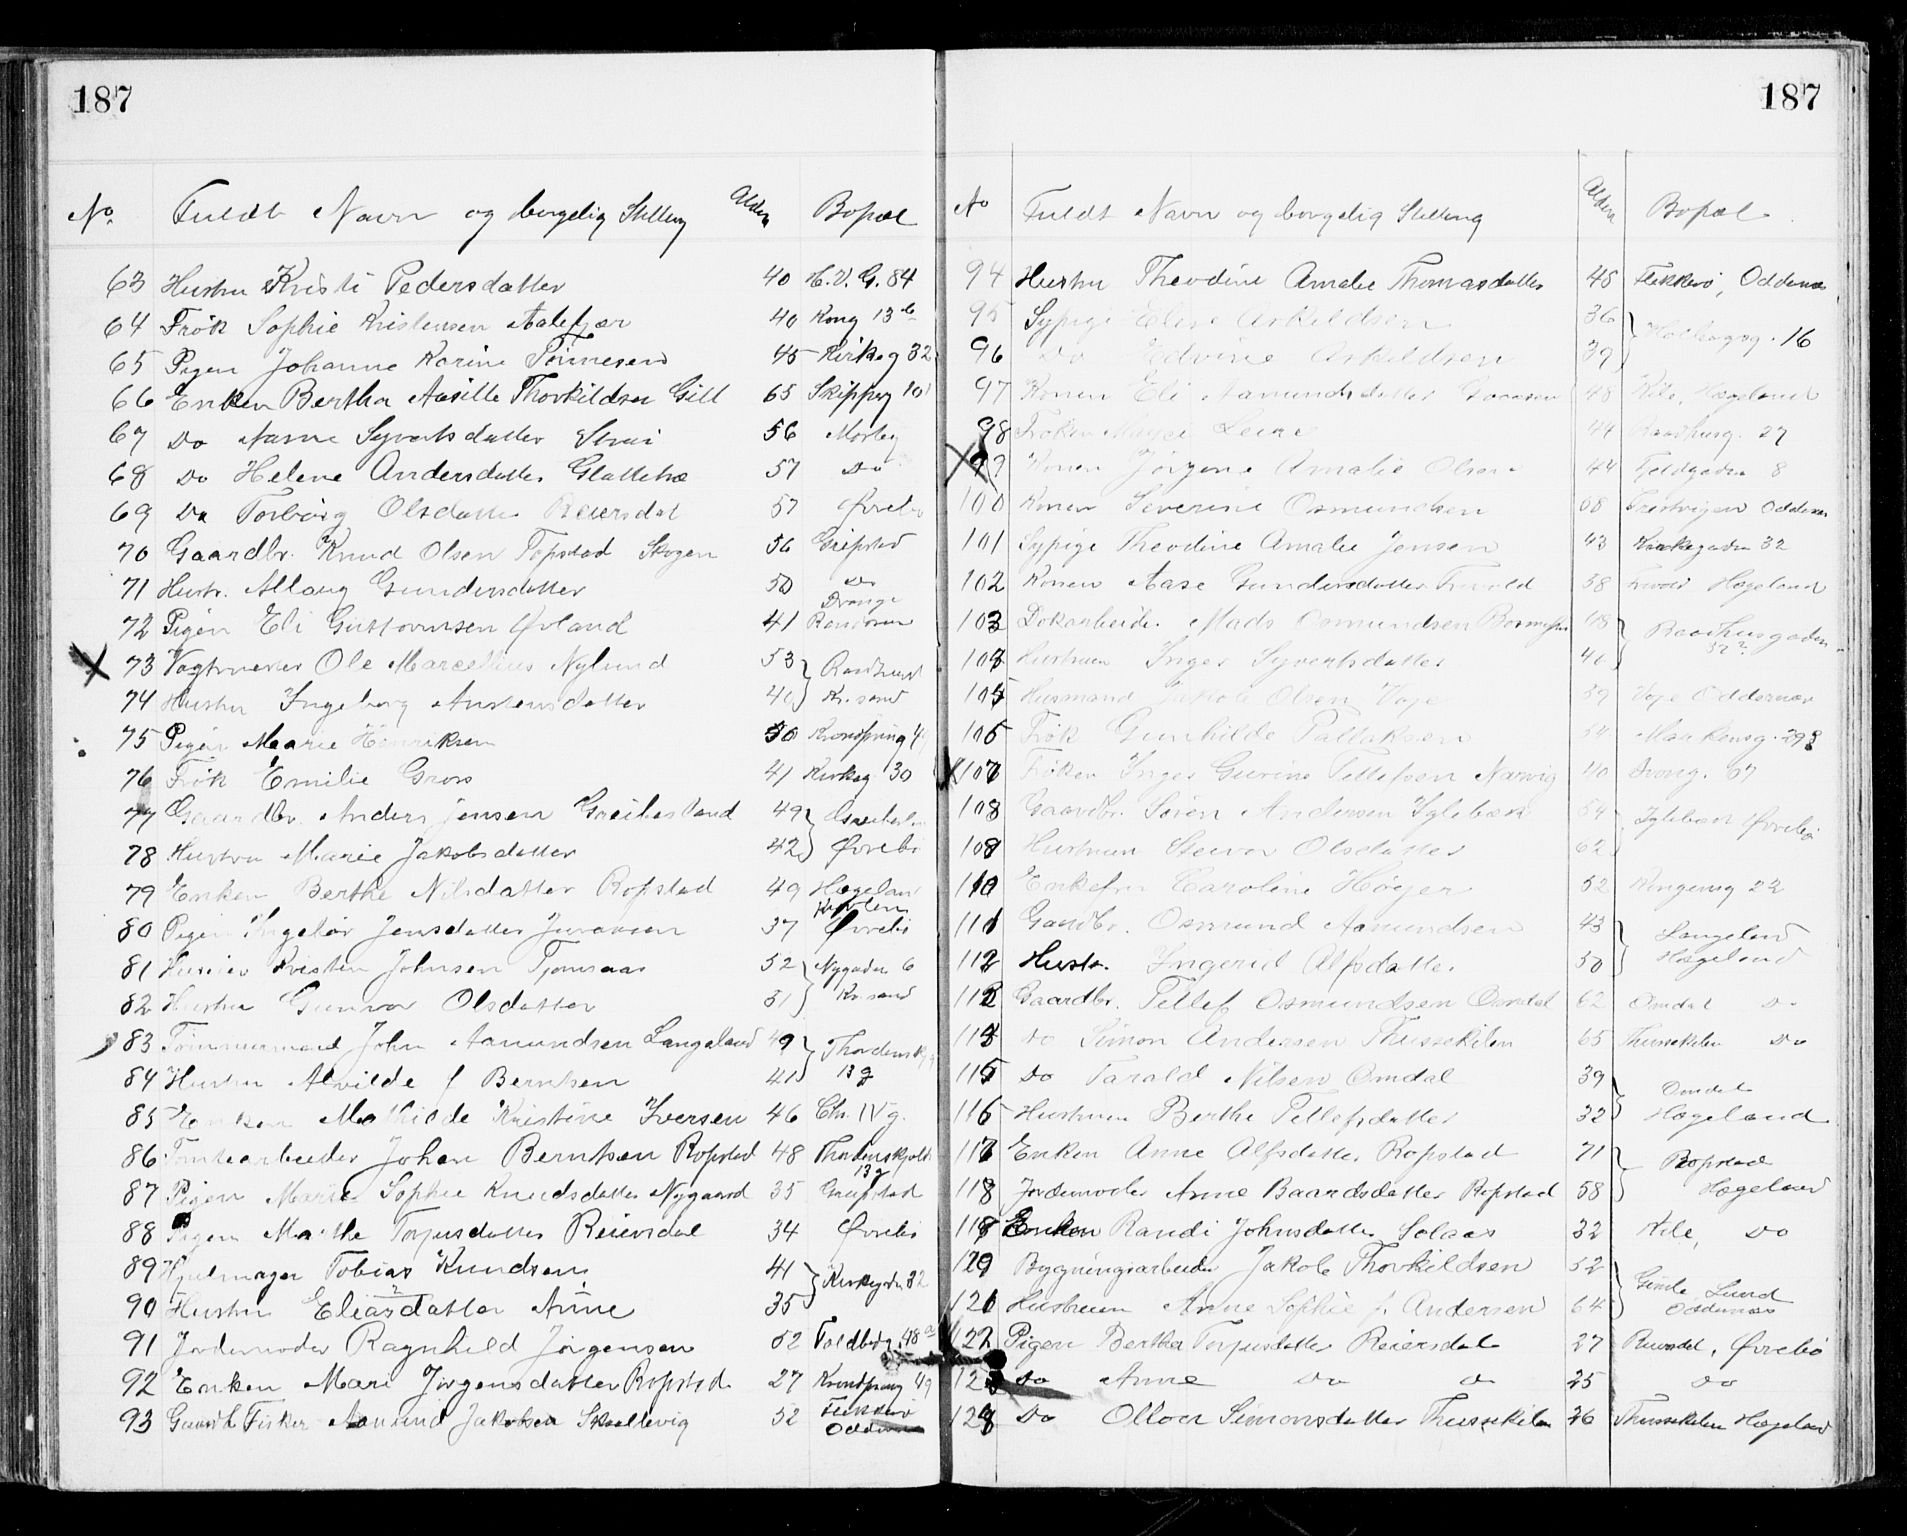 187
No. Fuldt Navn og borgelig Stilling Alder Bopæl
63 Hustru Kristi Pedersdatter 40 H. V. G. 84
64 Frøk Sophie Kristensen Aalefjær 40 Kong 13 b
65 Pigen Johanne Karine Tönnesen 45 Kirkeg 32
66 Enken Bertha Aasille Thorkildsen Gill 65 Skipperg 101
67 Do Aasne Syvertsdatter Strai 56 Mosby
68 Do Helene Andersdatter Glattetræ 57 Do
69 Do Torbörg Olsdatter Reiersdal 57 Øvrebø
70 Gaardbr. Knud Olsen Topstad Skogen 56 Greipstad
71 Hustr. Allaug Gundersdatter 50 Do
72 Pigen Eli Gustavussen Øvland 41 Drange Randøsun
73 Vagtmester Ole Marcellius Nylund 53 Raadhusg
74 Hustru Ingeborg Austensdatter 40 Kr.sand
75 Pigen Marie Hinriksen 30 Kronspring 4
76 Frøk Emilie Gross 41 Kirkeg 30
77 Gaardbr. Anders Jensen Greibesland 49
78 Hustru Marie Jakobsdatter 42 Øvrebø
79 Enken Berthe Nilsdatter Ropstad 49 Hægeland
80 Pigen Ingebör Jensdatter 37 Øvrebø
81 Kristen Johnsen Tjomsaas 52 Nygaden 6
82 Hustru Gunvor Olsdatter 51 Kr.sand
83 Tömmermand John Aamundsen Langeland 49 Thordensk
84 Hustru Alvilde f Berntsen 41 13 g
85 Enken Mathilde Kristine Iversen 46 Chr. IV g.
86 Tomtearbeider Johan Berntsen Ropstad 48 Thordenskjolds 13 g
87 Pigen Marie Sophie Knudsdatter Nygaard 35 Greipstad
88 Pigen Marthe Torjusdatter Reiersdal 34 Øvrebø
89 Hjulmager Tobias Knudsen 41 Kirkegaden 32
90 Hustru Eliasdatter Anne 35
91 Jordemoder Ragnhild Jörgensen 52 Toldbodg. 48 a
92 Enken Mari Jörgensdatter Ropstad 27 Kronspring 49
93 Gaardb Fisker Aanund Jakobsen Skaallevig 52 Flekkerø Oddernes
187
No Fuldt Navn og borgelig Stilling Alder Bopæl
94 Hustru Theodine Amalie Thomasdatter 45 Flekkerø, Oddernes
95 Sypige Elise Askildsen 36
96 Do Edvine Askildsen 39 Holbergsg. 16
97 Konen Eli Aamundsdatter 48 Kile, Hægeland
98 Frøken 44 Raadhusg. 27
99 Konen Jörgine Amalie Olsen 44 Tzldgaden 8
100 Konen Severine Osmundsen 58 Oddernes
101 Sypige Theodine Amalie Jensen 43 Kirkegaden 32
102 Konen Aase Gundersdatter Trivold 58 Hægeland
103 Dokarbeider Mads Osmundsen 48 Raadhusgaden
104 Hustruen Inger Syvertsdatter 40
105 Husmand Jakob Olsen Voje 59 Voje Oddernes
106 Frøk Gunhilde 54 Markensg. 29
107 Frøken Inger Gurine Tellefsen Narvig 40 Drong. 67
108 Gaardbr. Sören Andersen Iglebæk 54 Iglebæk Øvrebø
109 Hustruen Steivor Olsdatter 62
110 Enkefru Caroline Høyer 52 Kongensg 22
111 Gaardbr. Osmund Aamundsen 43 Langeland
112 Hustr. Ingerid Alfsdatter 50 Hægeland
113 Gaardbr. Tellef Osmundsen Omdal 62 Omdal Do
114 Do Simon Andersen Thussekilen 65 Thussekilen Do
115 Do Tarald Nilsen Omdal 39 Omdal
116 Hustruen Berthe Tellefsdatter 32 Hægeland
117 Enken Anne Alfsdatter Ropstad 71 Ropstad
118 Jordemoder Anne Baardsdatter Ropstad 58 Hægeland
119 Enken Randi Johnsdatter Solaas 32 Kile, Do
120 Bygningsarbeider Jakob Thorkildsen 52 Gimle Lund
121 Hustruen Anne Sophie f. Andersen 64 Oddernes
122 Pigen Bertha Torjusdatter Reiersdal 27 Reiersdal, Øvrebø
123 Do Anne Do Do 25 Do
124 Do Ollou Simonsdatter Thussekilen 26 Thussekilen Hægeland